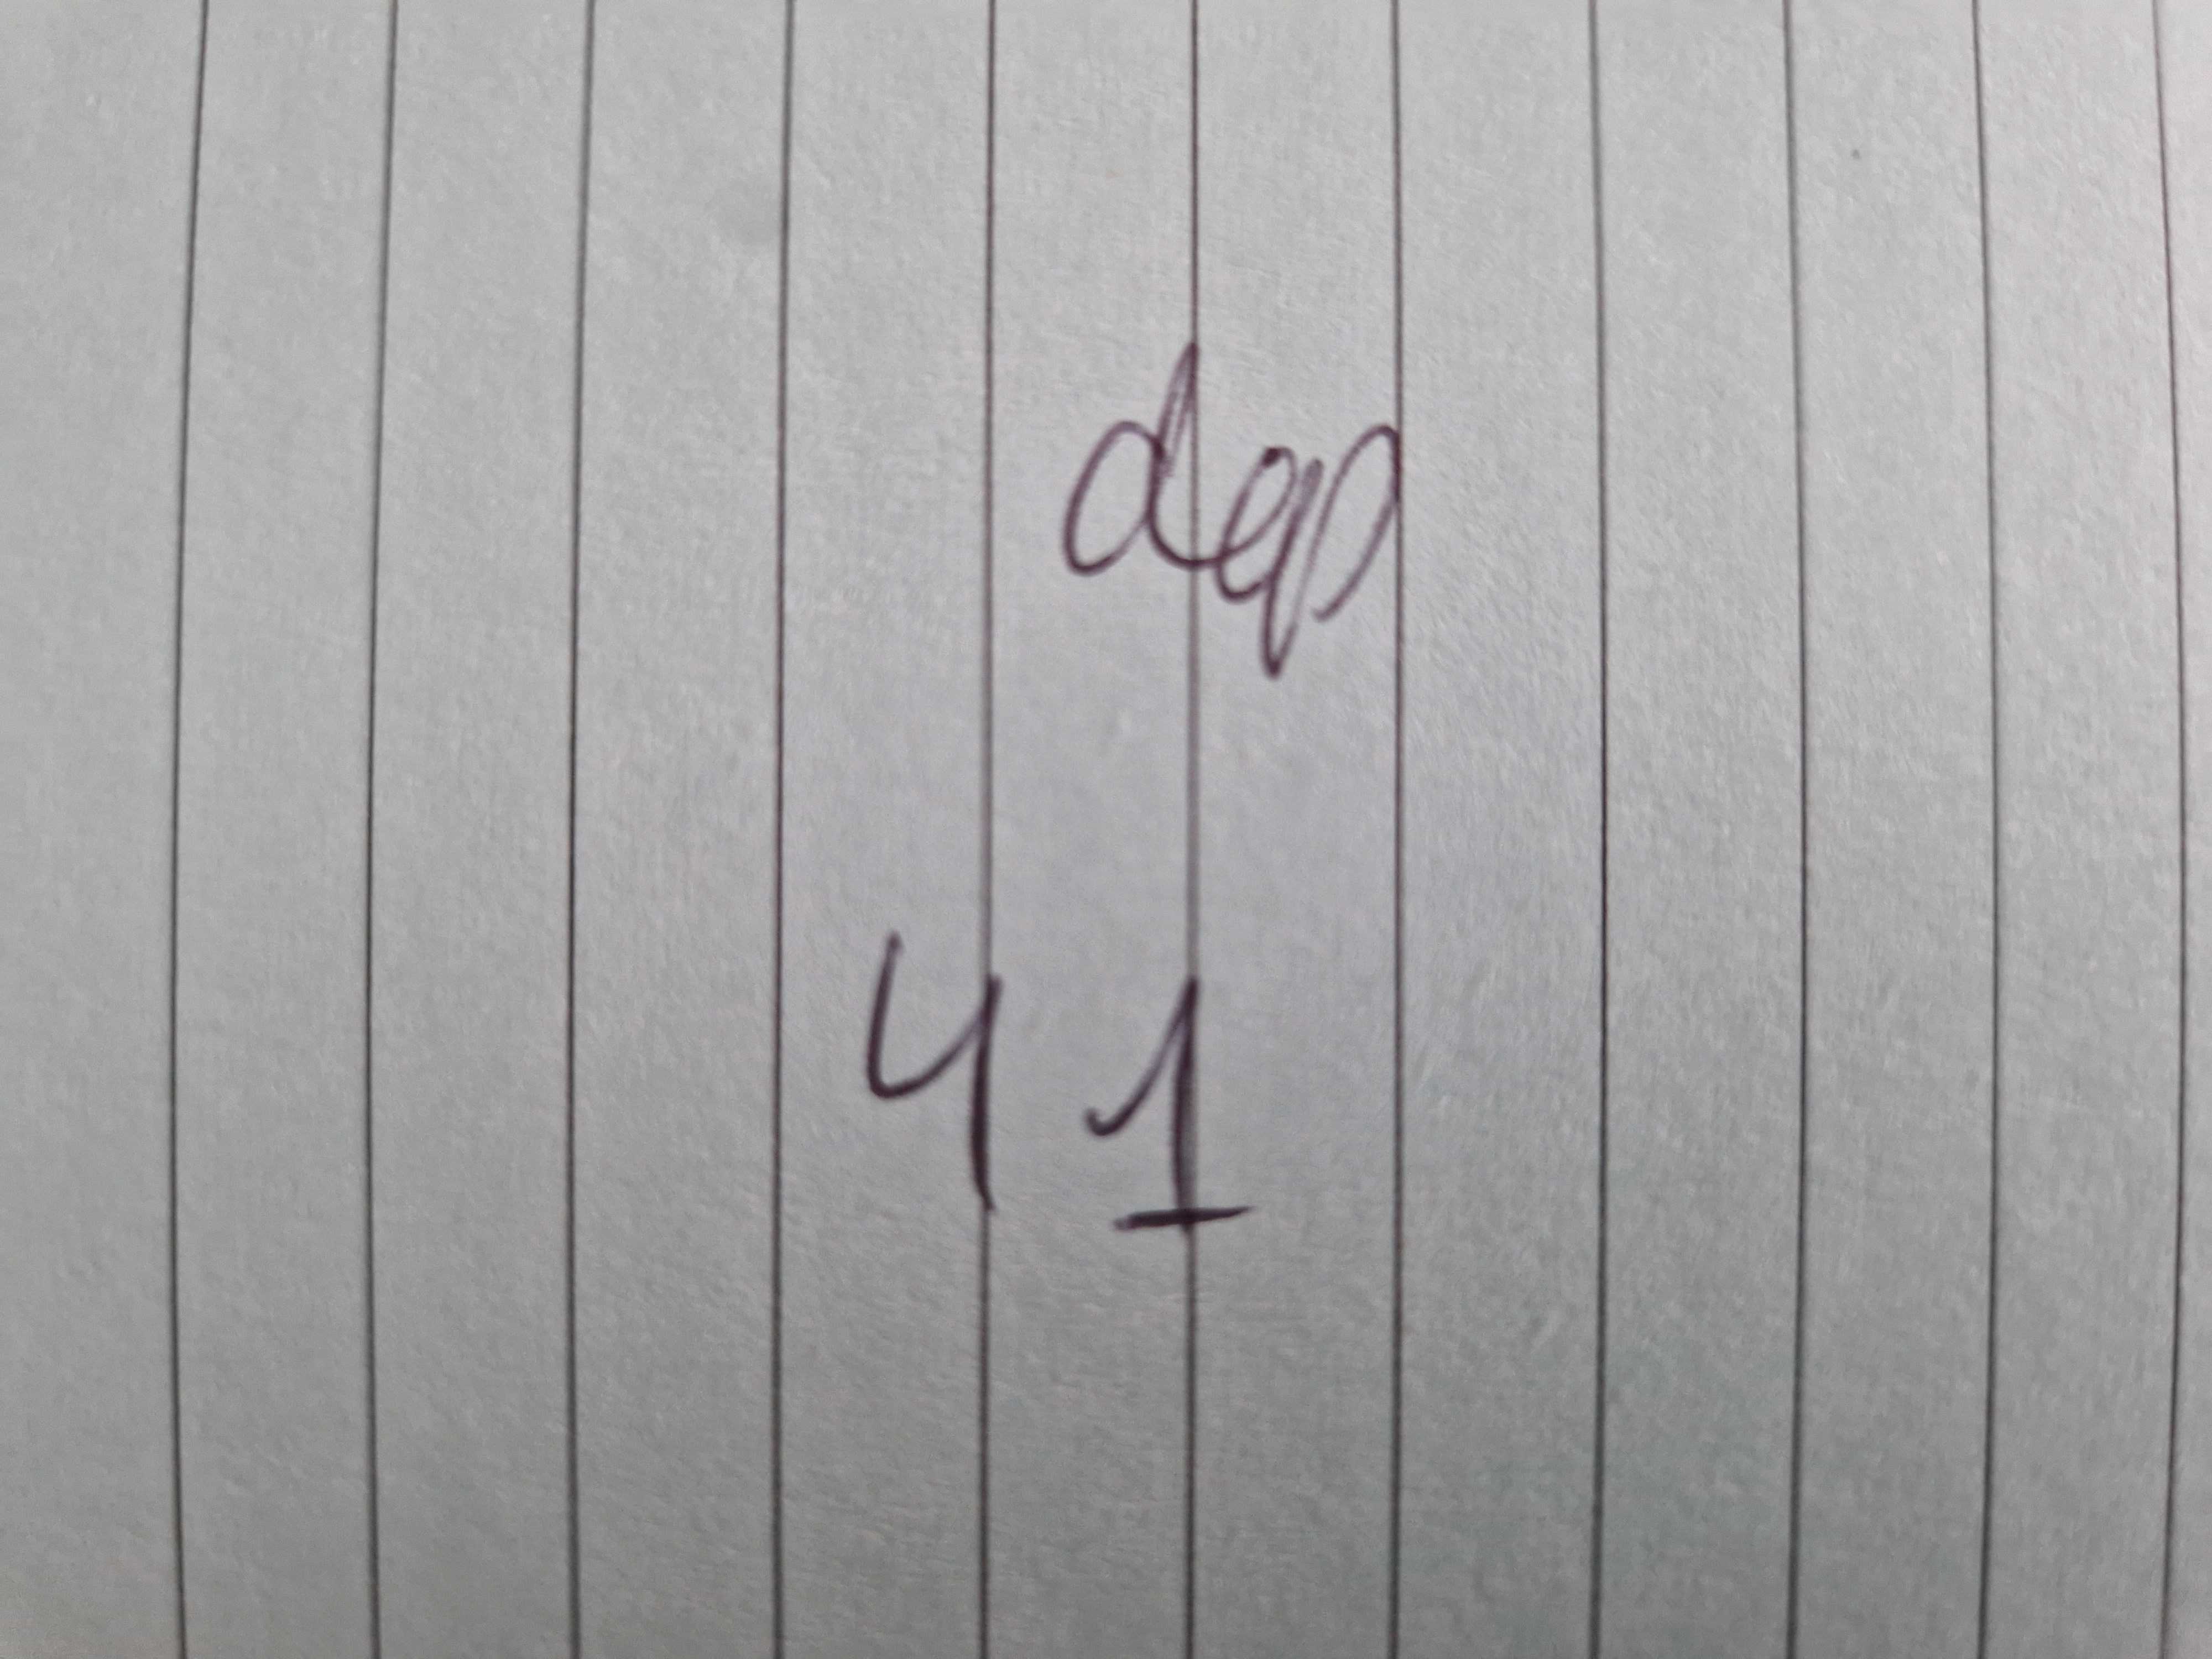 dep
41